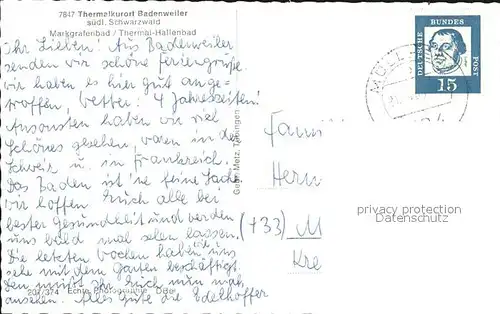 7847 Thermalkurort Badenweiler
südl. Schwarzwald
Markgrafenbad / Thermal-Hallenbad
Ihr Lieben! Aus Badenweiler
senden wir schöne Feriengrüße
wir haben es hier gut ange-
troffen, Wetter: 4 Jahreszeiten!
Ansonsten haben wir viel
Schönes gesehen, waren in der
Schweiz u. in Frankreich.
Das Baden ist 'ne feine Sache
wir hoffen Euch alle bei
bester Gesundheit und werden
uns bald mal sehen lassen.
Die letzten Wochen haben wir uns
sehr mit dem Garten beschäftigt.
Den müßt Ihr Euch nun mal
ansehen. Alles Gute die Edelhoffer
207/374 Echte Photographie
Gebr. Metz, Tübingen
DEUTSCHE BUNDES POST
15
MÜLL
Fam
Herrn
(433) M
Kre
privacy protection
Datenschutz